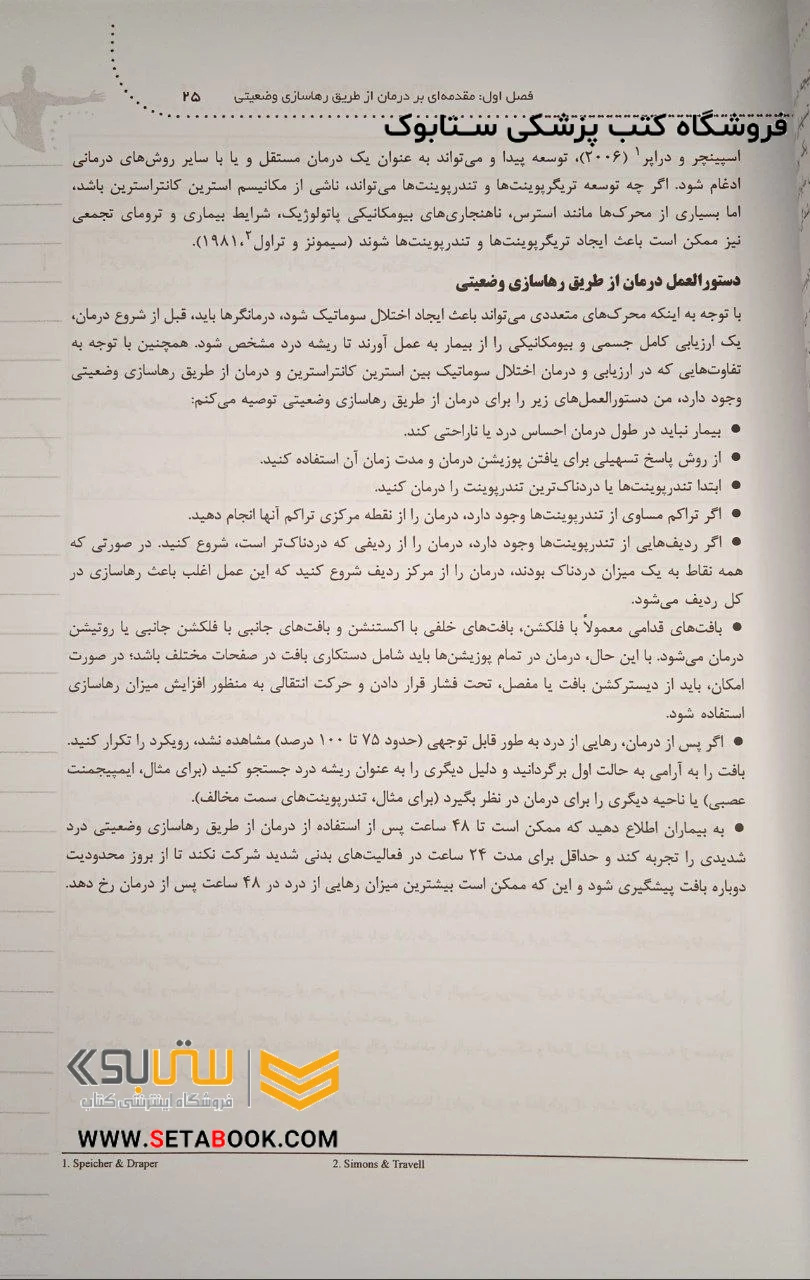 فصل اول: مقدمه‌ای بر درمان از طریق رهاسازی وضعیتی ۲۵
فروشگاه کتب پزشکی ستابوک
اسپیچر و دراپر۱ (۲۰۰۶)، توسعه پیدا و می‌تواند به عنوان یک درمان مستقل و یا با سایر روش‌های درمانی
ادغام شود. اگر چه توسعه تریگرپوینت‌ها و تندرپوینت‌ها می‌تواند، ناشی از مکانیسم استرین کانتراسترین باشد،
اما بسیاری از محرک‌ها مانند استرس، ناهنجاری‌های بیومکانیکی پاتولوژیک، شرایط بیماری و ترومای تجمعی
نیز ممکن است باعث ایجاد تریگرپوینت‌ها و تندرپوینت‌ها شوند (سیمونز و تراول۲، ۱۹۸۱).
دستورالعمل درمان از طریق رهاسازی وضعیتی
با توجه به اینکه محرک‌های متعددی می‌تواند باعث ایجاد اختلال سوماتیک شود، درمانگرها باید، قبل از شروع درمان،
یک ارزیابی کامل جسمی و بیومکانیکی را از بیمار به عمل آورند تا ریشه درد مشخص شود. همچنین با توجه به
تفاوت‌هایی که در ارزیابی و درمان اختلال سوماتیک بین استرین کانتراسترین و درمان از طریق رهاسازی وضعیتی
وجود دارد، من دستورالعمل‌های زیر را برای درمان از طریق رهاسازی وضعیتی توصیه می‌کنم:
● بیمار نباید در طول درمان احساس درد یا ناراحتی کند.
● از روش پاسخ تسهیلی برای یافتن پوزیشن درمان و مدت زمان آن استفاده کنید.
● ابتدا تندرپوینت‌ها یا دردناک‌ترین تندرپوینت را درمان کنید.
● اگر تراکم مساوی از تندرپوینت‌ها وجود دارد، درمان را از نقطه مرکزی تراکم آنها انجام دهید.
● اگر ردیف‌هایی از تندرپوینت‌ها وجود دارد، درمان را از ردیفی که دردناک‌تر است، شروع کنید. در صورتی که
همه نقاط به یک میزان دردناک بودند، درمان را از مرکز ردیف شروع کنید که این عمل اغلب باعث رهاسازی در
کل ردیف می‌شود.
● بافت‌های قدامی معمولاً با فلکشن، بافت‌های خلفی با اکستنشن و بافت‌های جانبی با فلکشن جانبی یا روتیشن
درمان می‌شود. با این حال، درمان در تمام پوزیشن‌ها باید شامل دستکاری بافت در صفحات مختلف باشد؛ در صورت
امکان، باید از دیسترکشن بافت یا مفصل، تحت فشار قرار دادن و حرکت انتقالی به منظور افزایش میزان رهاسازی
استفاده شود.
● اگر پس از درمان، رهایی از درد به طور قابل توجهی (حدود ۷۵ تا ۱۰۰ درصد) مشاهده نشد، رویکرد را تکرار کنید.
بافت را به آرامی به حالت اول برگردانید و دلیل دیگری را به عنوان ریشه درد جستجو کنید (برای مثال، ایمپیجمنت
عصبی) یا ناحیه دیگری را برای درمان در نظر بگیرد (برای مثال، تندرپوینت‌های سمت مخالف).
● به بیماران اطلاع دهید که ممکن است تا ۴۸ ساعت پس از استفاده از درمان از طریق رهاسازی وضعیتی درد
شدیدی را تجربه کند و حداقل برای مدت ۲۴ ساعت در فعالیت‌های بدنی شدید شرکت نکند تا از بروز محدودیت
دوباره بافت پیشگیری شود و این که ممکن است بیشترین میزان رهایی از درد در ۴۸ ساعت پس از درمان رخ دهد.
ستابوک
فروشگاه اینترنتی کتاب
WWW.SETABOOK.COM
1. Speicher & Draper 2. Simons & Travell